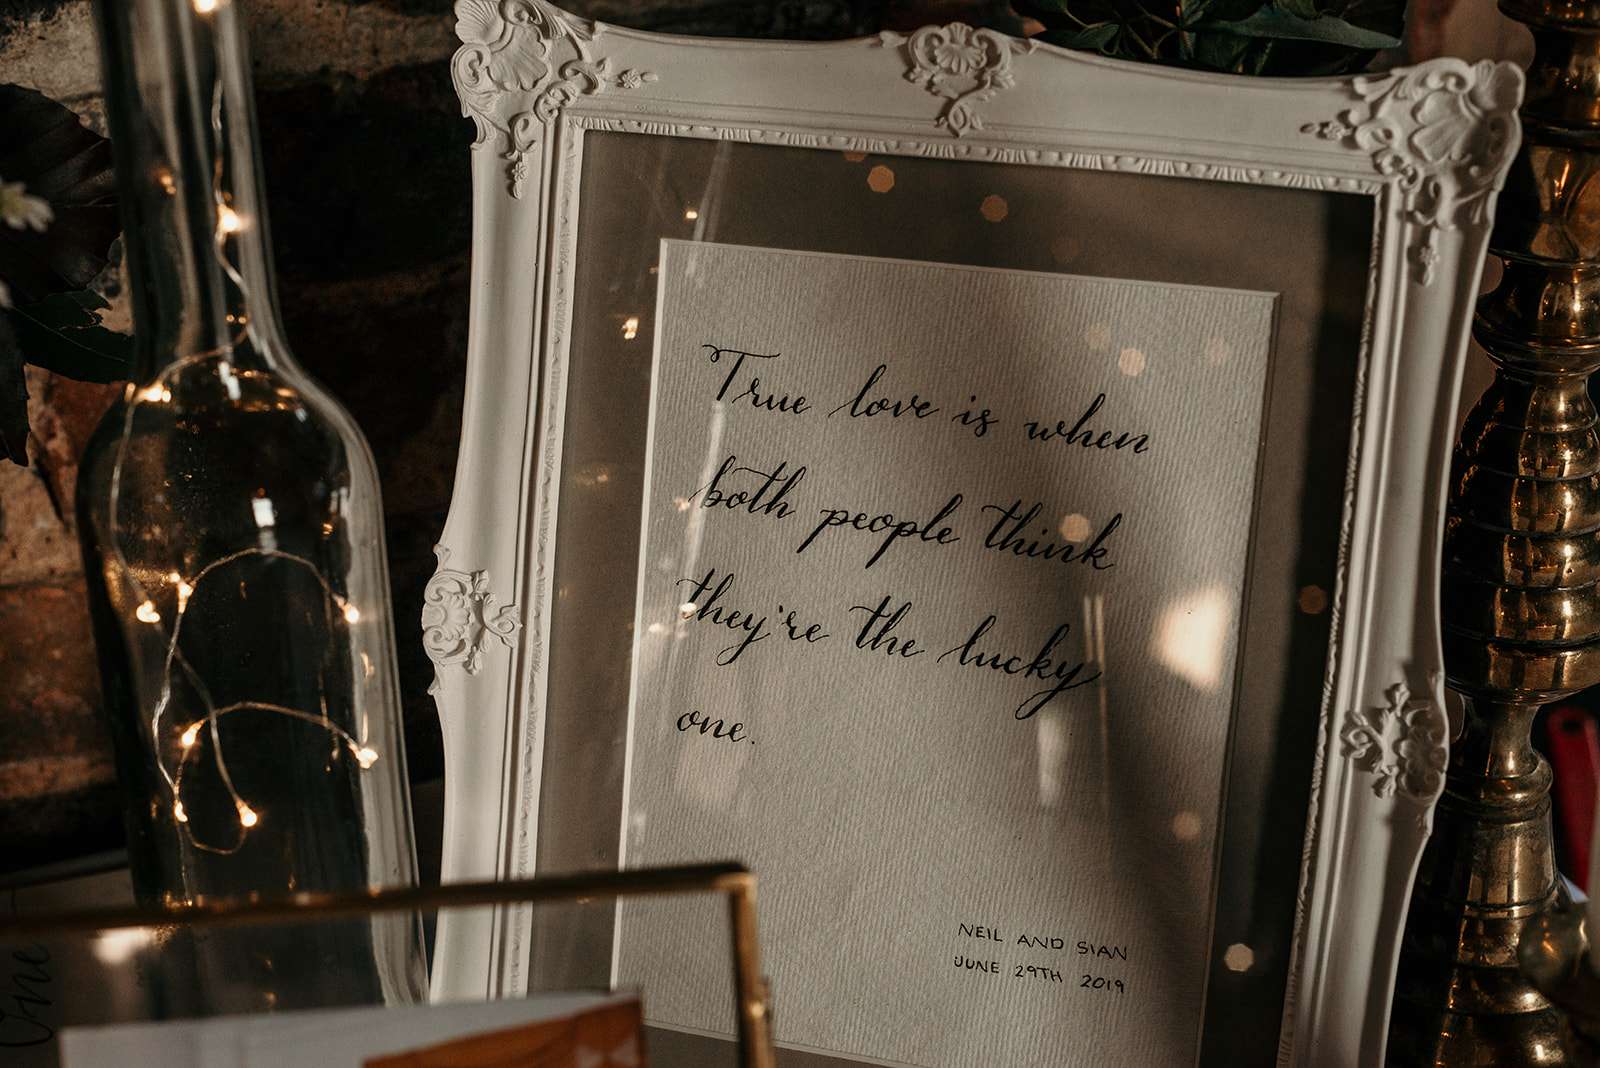 True love is when
both people think
they're the lucky
one.
NEIL AND SIAN
JUNE 29TH 2019
One